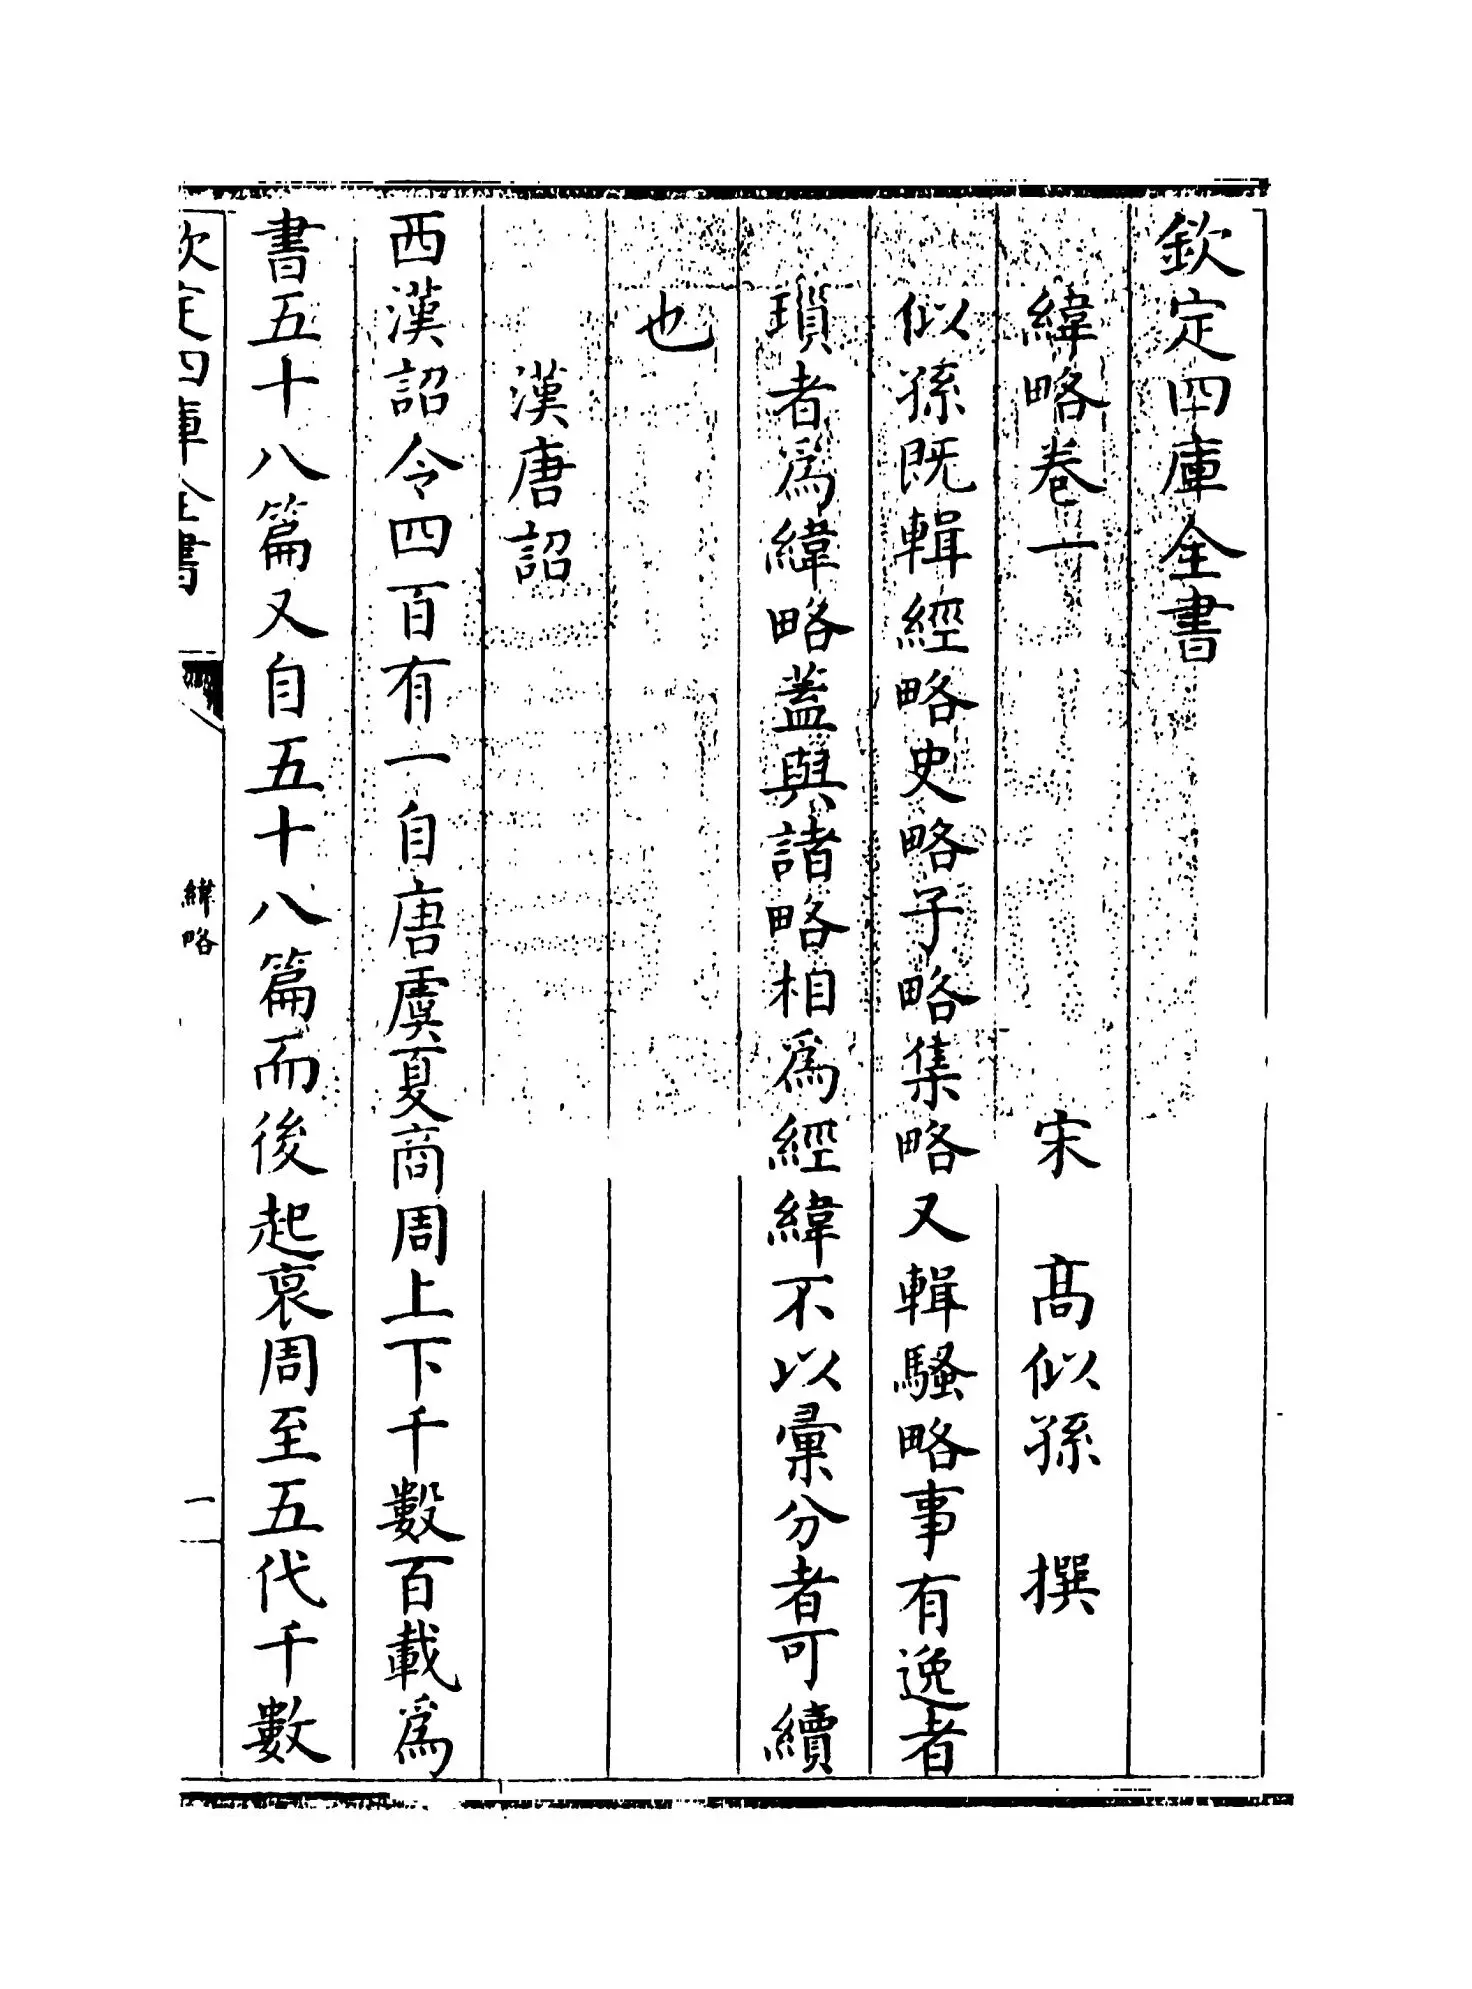 欽定四庫全書
緯略卷一
宋 髙似孫 撰
似孫既輯經略史略子略集略又輯騷略事有逸者
瑣者為緯略蓋與諸略相為經緯不以彙分者可續
也
漢唐詔
西漢詔令四百有一自唐虞夏商周上下千數百載為
書五十八篇又自五十八篇而後起衰周至五代千數
欽定四庫全書
緯略
一